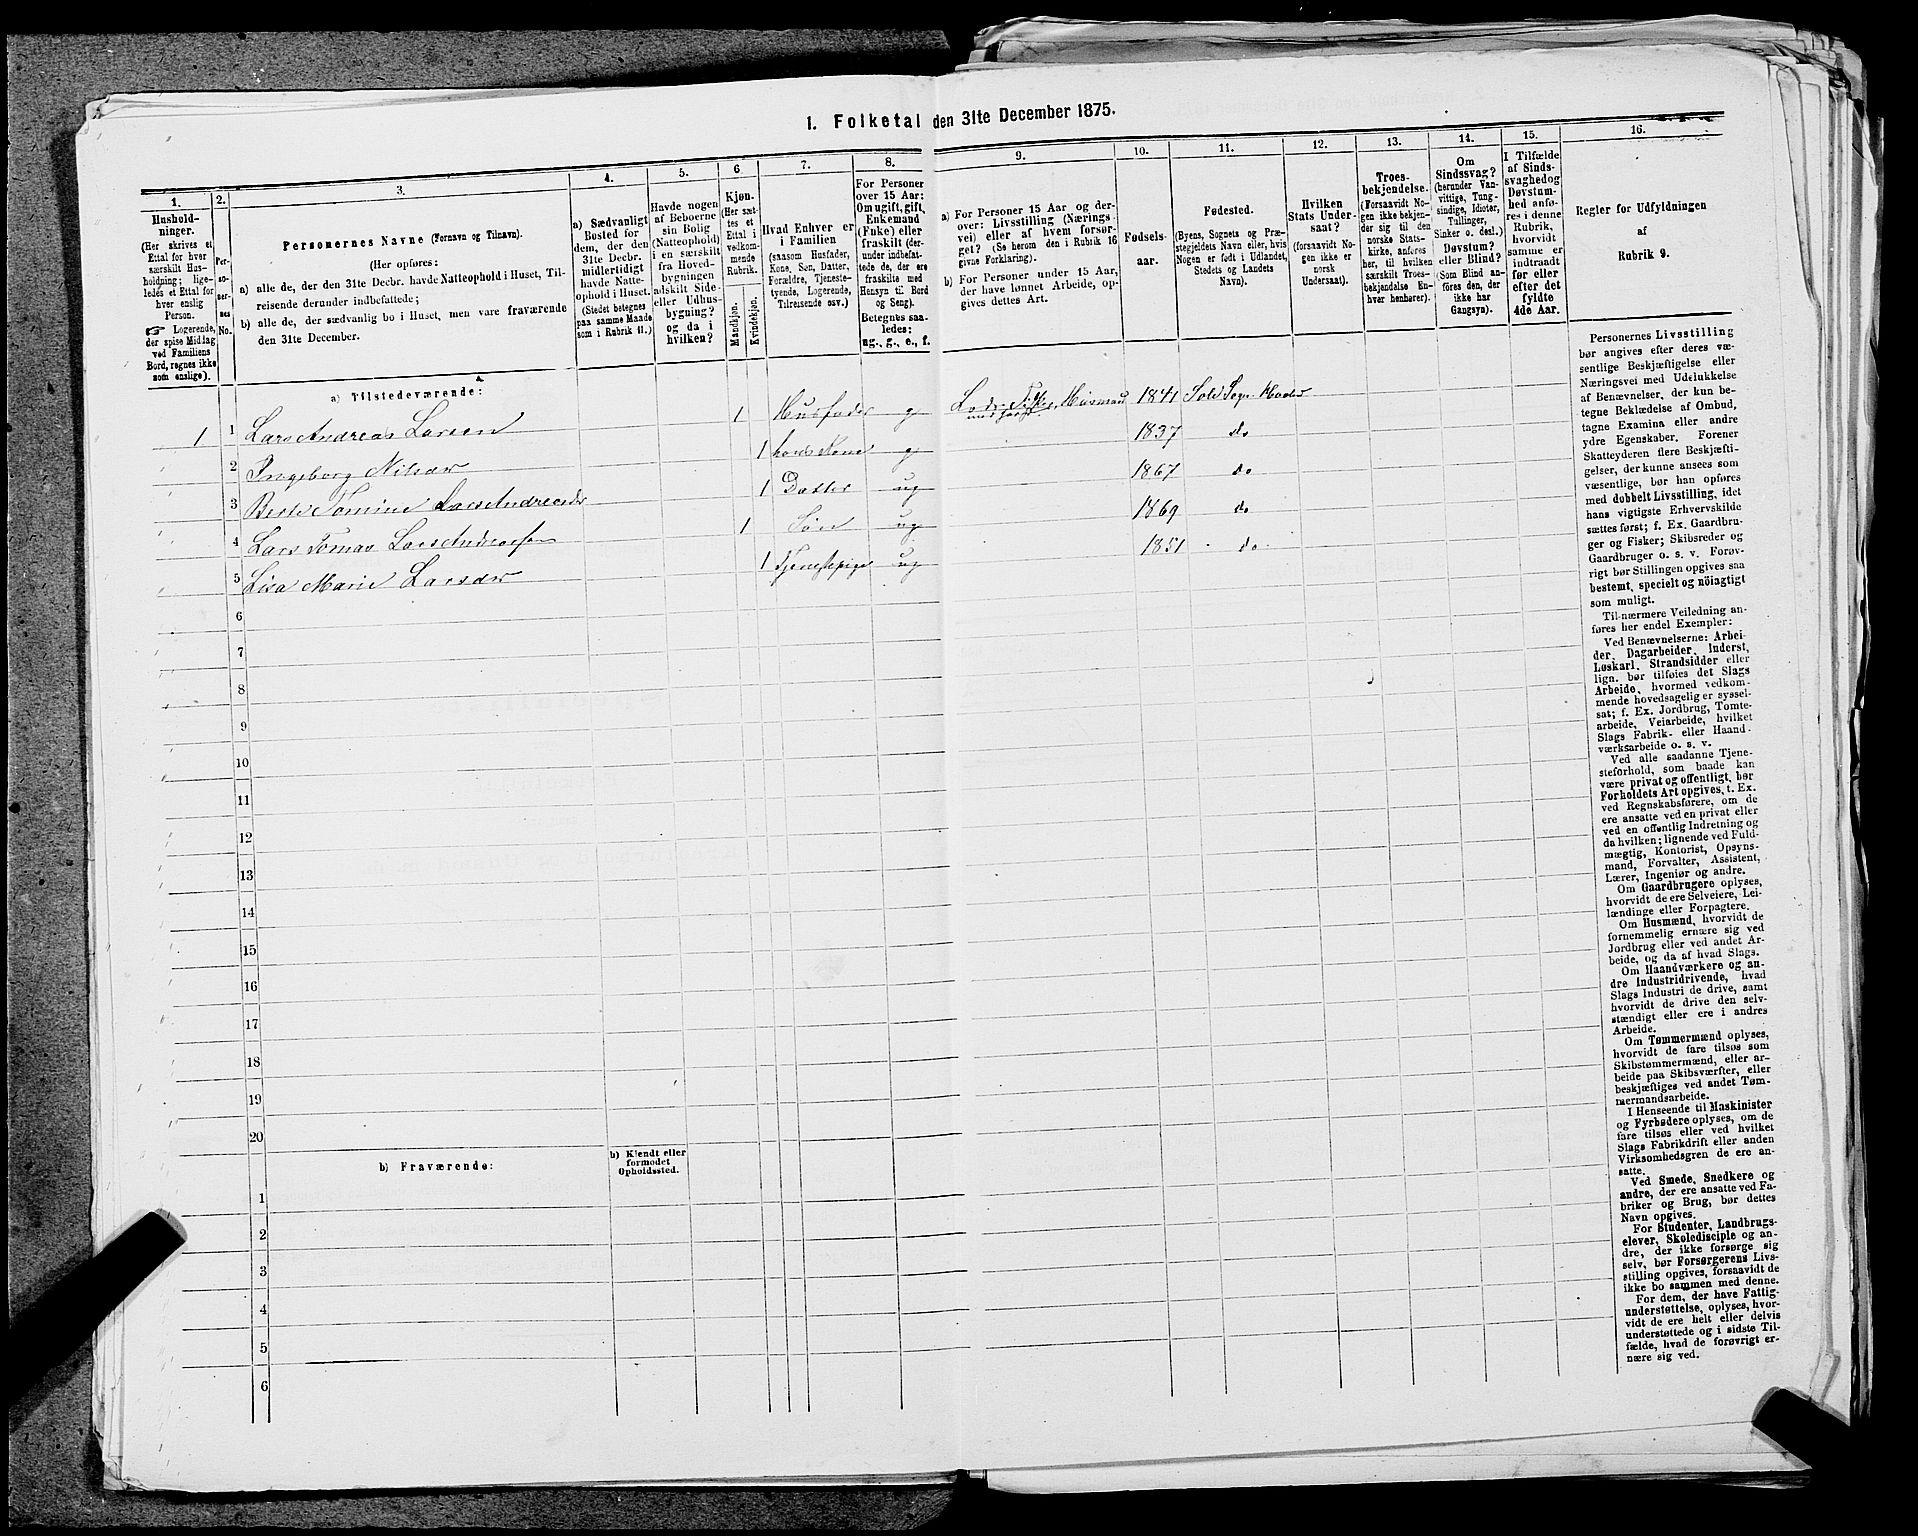 1. Folketal den 31te December 1875.
1.
2.
3.
4.
5.
6
7.
8.
9.
10.
11.
12.
13.
14.
15.
16.
Hushold-
ninger.
(Her skrives et
Ettal for hver
særskilt Hus-
holdning; lige-
ledes et Ettal for
hver enslig
Person.
☞ Logerende,
der spise Middag
ved Familiens
Bord, regnes ikke
som enslige).
Per-
so-
ner-
nes
No.
Personernes Navne (Fornavn og Tilnavn).
(Her opføres:
a) alle de, der den 31te Decbr. havde Natteophold i Huset, Til-
reisende derunder indbefattede;
b) alle de, der sædvanlig bo i Huset, men vare fraværende
den 31te December.
a) Sædvanligt
Bosted for
dem, der den
31te Decbr.
midlertidigt
havde Natte-
ophold i Huset.
(Stedet betegnes
paa samme Maade
som i Rubrik 11.)
Havde nogen
af Beboerne
sin Bolig
(Natteophold)
i en særskilt
fra Hoved-
bygningen
adskilt Side-
eller Udhus-
bygning?
og da i
hvilken?
Kjøn.
(Her sæt-
tes et
Ettal i
vedkom-
mende
Rubrik.
Mandkjøn.
Kvindekjøn.
Hvad Enhver er
i Familien
(saasom Husfader,
Kone, Søn, Datter,
Forældre, Tjeneste-
tyende, Logerende,
Tilreisende osv.)
For Personer
over 15 Aar:
Om ugift, gift,
Enkemand
(Enke) eller
fraskilt (der-
under indbefat-
tede de, der ere
fraskilte med
Hensyn til Bord
og Seng).
Betegnes saa-
ledes:
ug., g., e., f.
a) For Personer 15 Aar og der-
over: Livsstilling (Nærings-
vei) eller af hvem forsør-
get? (Se herom den i Rubrik 16
givne Forklaring).
b) For Personer under 15 Aar,
der have lønnet Arbeide, op-
gives dettes Art.
Fødsels-
aar.
Fødested.
(Byens, Sognets og Præ-
stegjeldets Navn eller, hvis
Nogen er født i Udlandet,
Stedets og Landets
Navn).
Hvilken
Stats Under-
saat?
(forsaavidt No-
gen ikke er
norsk
Undersaat).
Troes-
bekjendelse.
(Forsaavidt No-
gen ikke bekjen-
der sig til den
norske Stats-
kirke, anføres
her, til hvilken
særskilt Troes-
bekjendelse En-
hver henhører).
Om
Sindssvag?
(herunder Van-
vittige, Tung-
sindige, Idioter,
Tullinger,
Sinker o. desl.)
Døvstum?
eller Blind?
(Som Blind an-
føres den, der
ikke har
Gangsyn).
I Tilfælde
af Sinds-
svaghed og
Døvstum-
hed anfø-
res i denne
Rubrik,
hvorvidt
samme er
indtraadt
før eller
efter det
fyldte
4de Aar.
Regler for Udfyldningen
af
Rubrik 9.
a) Tilstedeværende:
1 1 Lars Andreas Larsen 1 Husfader g Fisker, Husmand 1841 Sogn
2 Ingeborg Nilsdr 1 hans Kone g 1837 do
3 Berte Tomine LarsAndreasdr 1 Datter ug 1867 do
4 Lars Tomas LarsAndreasen 1 Søn ug 1869 do
5 Lisa Marie Larsdr 1 Tjenestepige ug 1851 do
6
7
8
9
10
11
12
13
14
15
16
17
18
19
20
b) Fraværende:
b) Kjendt eller
formodet
Opholdssted.
1
2
3
4
5
6
Personernes Livsstilling
bør angives efter deres væ-
sentlige Beskjæftigelse eller
Næringsvei med Udelukkelse
af Benævnelser, der kun be-
tegne Beklædelse af Ombud,
tagne Examina eller andre
ydre Egenskaber. Forener
Skatteyderen flere Beskjæfti-
gelser, der kunne ansees som
væsentlige, bør han opføres
med dobbelt Livsstilling, idet
hans vigtigste Erhvervskilde
sættes først; f. Ex. Gaardbru-
ger og Fisker; Skibsreder og
Gaardbruger o. s. v. Forøv-
rigt bør Stillingen opgives saa
bestemt, specielt og nöiagtigt
som muligt.
Til nærmere Veiledning an-
føres her endel Exempler:
Ved Benævnelserne: Arbei-
der, Dagarbeider, Inderst,
Løskarl, Strandsidder eller
lign. bør tilføies det Slags
Arbeide, hvormed vedkom-
mende hovedsagelig er syssel-
sat; f. Ex. Jordbrug, Tomte-
arbeide, Veiarbeide, hvilket
Slags Fabrik- eller Haand-
værksarbeide o. s. v.
Ved alle saadanne Tjene-
steforhold, som baade kan
være privat og offentligt, bør
Forholdets Art opgives, t. Ex.
ved Regnskabsførere, om de
ere ansatte ved en privat eller
ved en offentlig Indretning og
da hvilken; lignende ved Fuld-
mægtig, Kontorist, Opsyns-
mand, Forvalter, Assistent,
Lærer, Ingeniør og andre.
Om Gaardbrugere oplyses,
hvorvidt de ere Selveiere, Lei-
lændinge eller Forpagtere.
Om Husmænd, hvorvidt de
fornemmelig ernære sig ved
Jordbrug eller ved andet Ar-
beide, og da af hvad Slags.
Om Haandværkere og an-
dre Industridrivende, hvad
Slags Industri de drive, samt
hvorvidt de drive den selv-
stændigt eller ere i andres
Arbeide.
Om Tømmermænd oplyses,
hvorvidt de fare tilsøs som
Skibstømmermænd, eller ar-
beide paa Skibsværfter, eller
beskjæftiges ved andet Tøm-
mermandsarbeide.
I Henseende til Maskinister
og Fyrbødere oplyses, om de
fare tilsøs eller ved hvilket
Slags Fabrikdrift eller anden
Virksomhedsgren de ere an-
satte.
Ved Smede, Snedkere og
andre, der ere ansatte ved Fa-
briker og Brug, bør dettes
Navn opgives.
For Studenter, Landbrugs-
elever, Skoledisciple og an-
dre, der ikke forsørge sig
selv, bør Forsørgerens Livs-
stilling opgives, forsaavidt de
ikke bo sammen med denne.
For dem, der have Fattig-
understøttelse, oplyses, hvor-
vidt de ere helt eller delvis
understøttede og i sidste Til-
fælde, hvad de forøvrigt er-
nære sig ved.